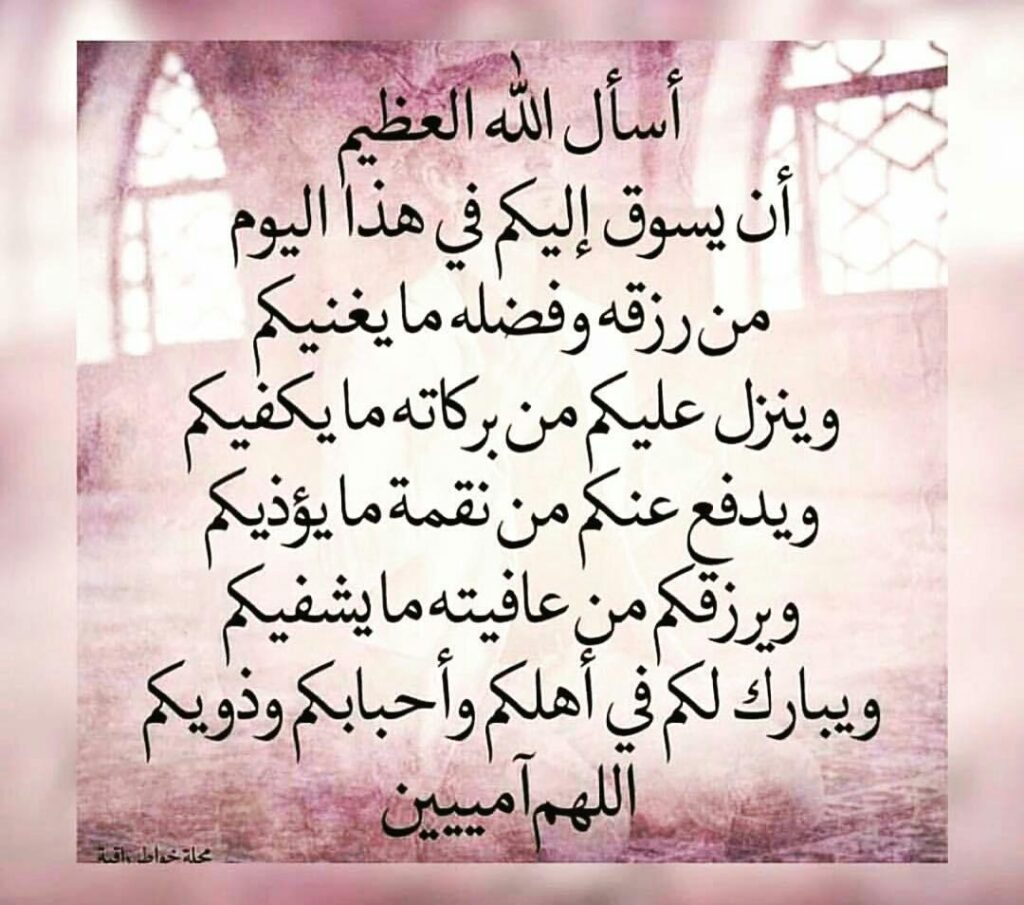 أسأل الله العظيم
أن يسوق إليكم في هذا اليوم
من رزقه وفضله ما يغنيكم
وينزل عليكم من بركاته ما يكفيكم
ويدفع عنكم من نقمة ما يؤذيكم
ويرزقكم من عافيته ما يشفيكم
ويبارك لكم في أهلكم وأحبابكم وذويكم
اللهم آمييين
مجلة خواطر راقية